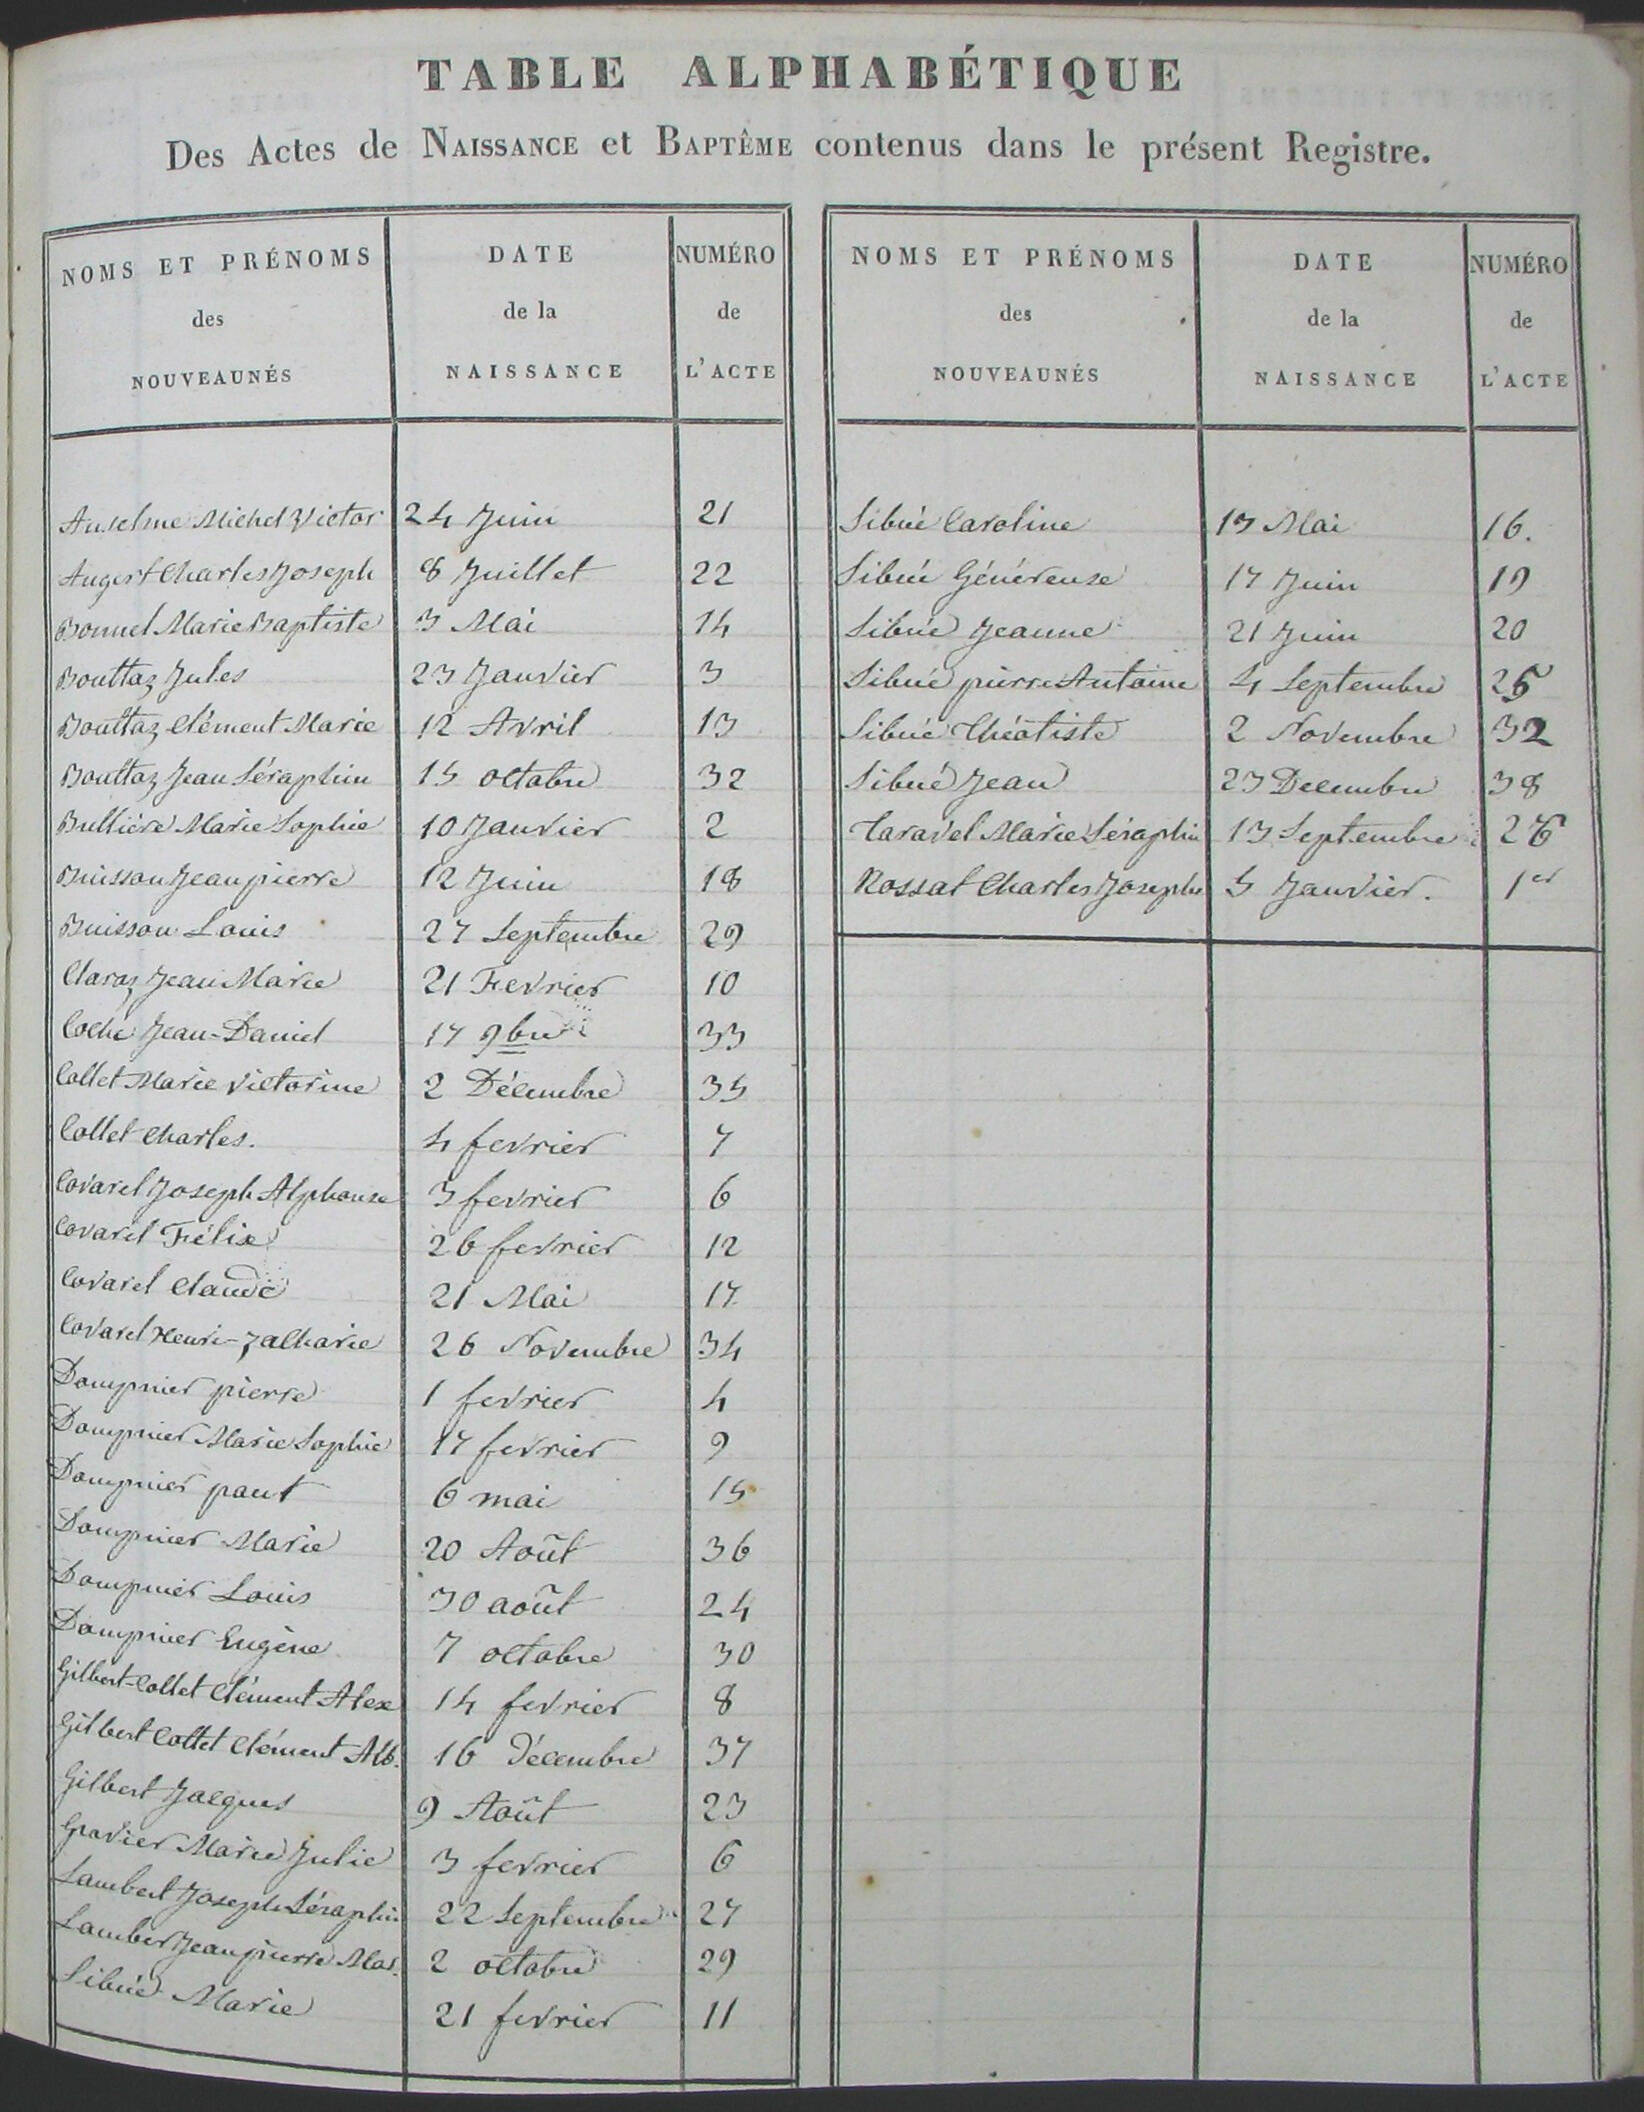 TABLE ALPHABÉTIQUE
Des Actes de NAISSANCE et BAPTÊME contenus dans le présent Registre.
NOMS ET PRÉNOMS
des
NOUVEAUNÉS
DATE
de la
NAISSANCE
NUMÉRO
de
L'ACTE
Anselme Michel Victor 24 Juin 21
Augert Charles Joseph 8 Juillet 22
Bonnel Marie Baptiste 3 Mai 14
Bouttaz Jules 23 Janvier 3
Bouttaz Clément Marie 12 Avril 13
Bouttaz Jean Séraphin 15 octobre 32
Bullière Marie Sophie 10 Janvier 2
Buisson Jean pierre 12 Juin 18
Buisson Louis 27 Septembre 29
Claraz Jean Marie 21 Fevrier 10
Coche Jean-Daniel 17 9bre 33
Collet Marie Victorine 2 Décembre 35
Collet Charles. 4 fevrier 7
Covarel Joseph Alphonse 3 fevrier 6
Covarel Félix 26 fevrier 12
Covarel Claude 21 Mai 17
Covarel Henri-Zacharie 26 Novembre 34
Dompnier pierre 1 fevrier 4
Dompnier Marie Sophie 17 fevrier 9
Dompnier paul 6 mai 15
Dompnier Marie 20 Août 36
Dompnier Louis 30 août 24
Dompnier Eugène 7 octobre 30
Gilbert-Collet Clément Alex 14 fevrier 8
Gilbert Collet Clément Alb. 16 Décembre 37
Gilbert Jacques 9 Août 23
Gravier Marie Julie 3 fevrier 6
Lambert Joseph Séraphin 22 Septembre 27
Lamber Jean pierre Mar. 2 octobre 29
Sibué Marie 21 fevrier 11
NOMS ET PRÉNOMS
des
NOUVEAUNÉS
DATE
de la
NAISSANCE
NUMÉRO
de
L'ACTE
Sibué Caroline 13 Mai 16.
Sibué Généreuse 17 Juin 19
Sibué Jeanne 21 Juin 20
Sibué pierre Antoine 4 Septembre 25
Sibué Théotiste 2 Novembre 32
Sibué Jean 23 Decembre 38
Taravel Marie Séraphin 13 Septembre 26
Rossat Charles Joseph 5 Janvier. 1er